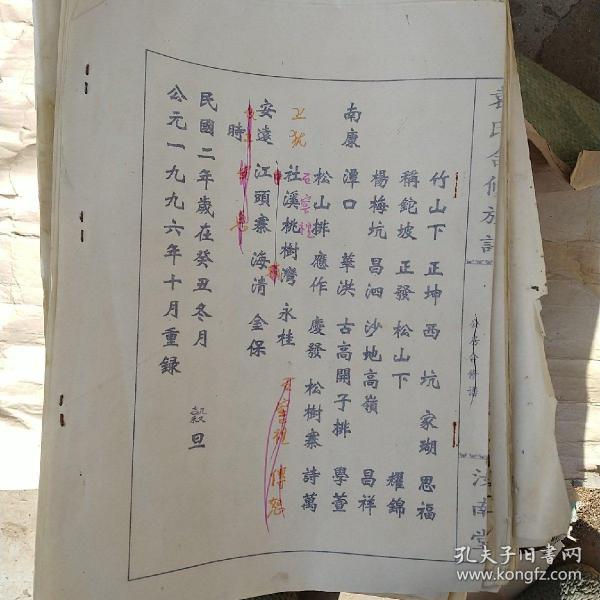 袁氏合修族譜
汝南堂
竹山下 正坤 西坑 家瑚 思福
稱鉈坡 正發 松山下 耀錦
楊梅坑 昌泗 沙地高嶺 昌祥
南康 潭口 華洪 古高開子排 學萱
松山排 應作 慶發 松樹寨 詩萬
上犹 社溪桃樹灣 永桂
安遠 江頭寨 海清 金保
時
民國二年歲在癸丑冬月 穀旦
公元一九九六年十月重録
孔夫子旧書网
www.kongfz.com